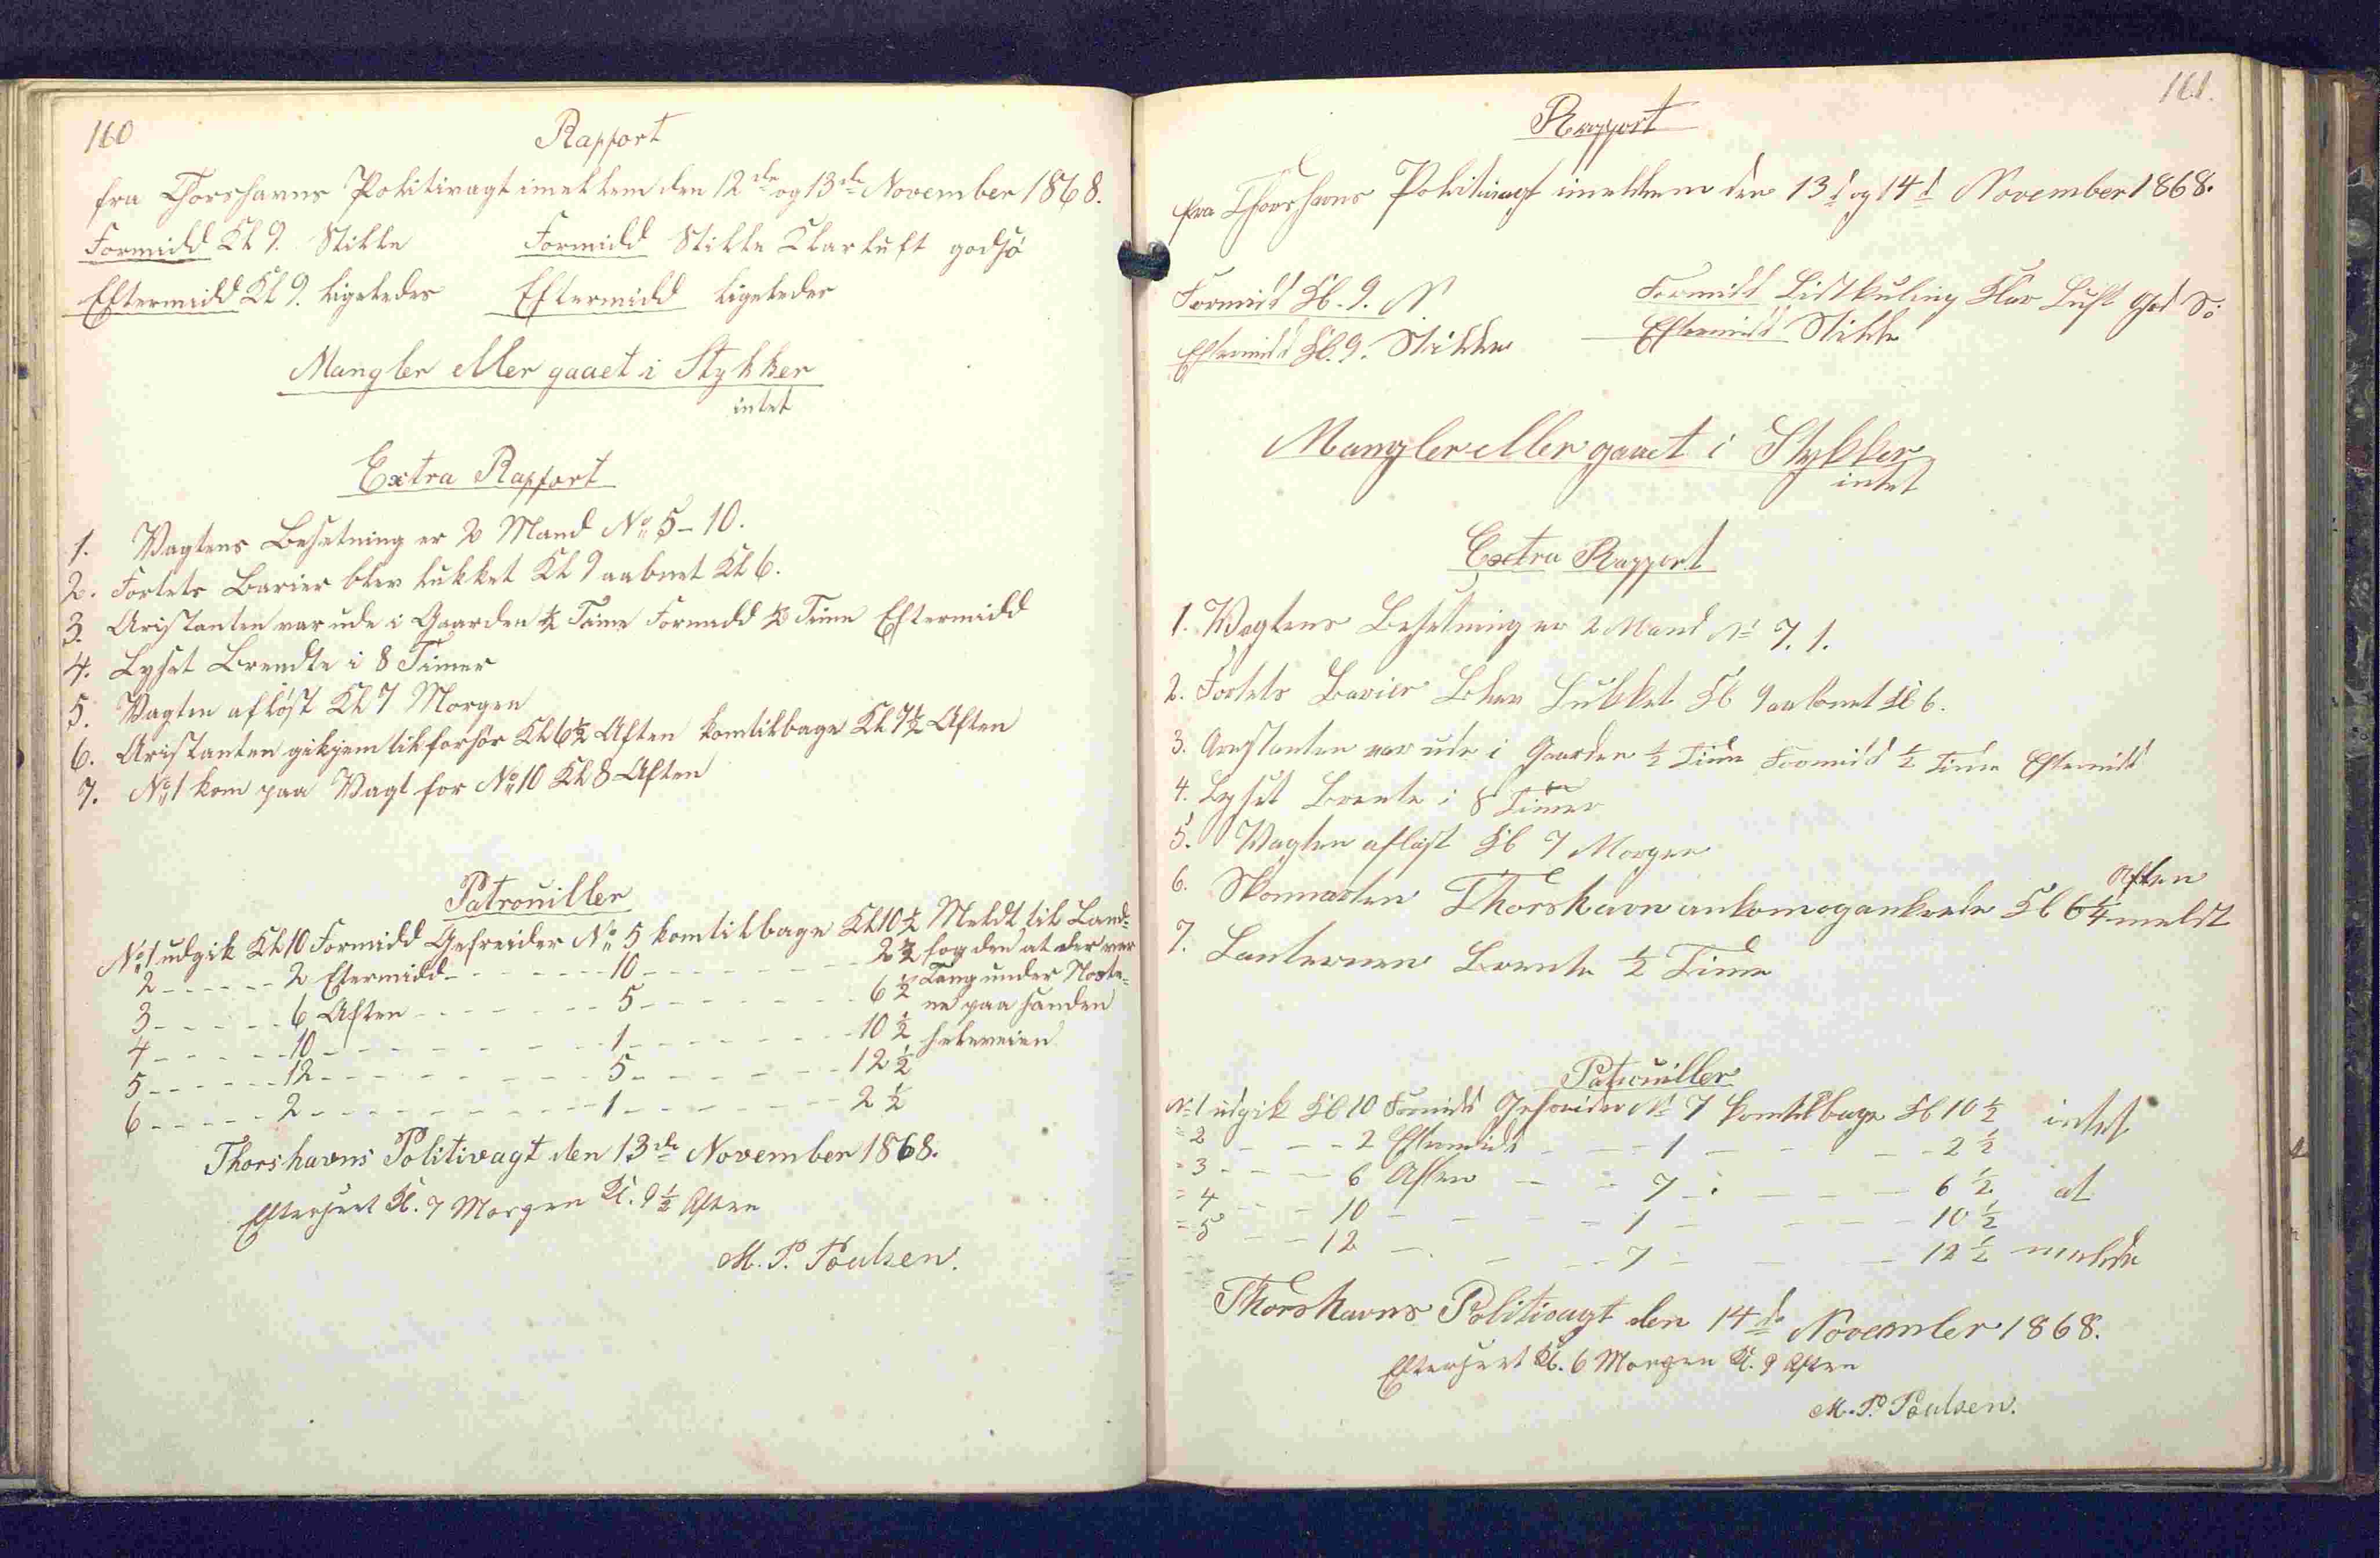 160
Rapport
fra Thorshavns Politivagt imellem den 12de og 13de November 1868.
Formidd Kl 9. Stille Formidd Stille Klar luft godsö
Eftermidd Kl 9. ligeledes Eftermidd ligeledes
Mangler eller gaaet i Stykker
intet
Extra Rapport
1. Vagtens Besetning er 2 Mand No 5-10.
2. Fortets Barier blev lukket Kl 9 aabnet Kl 6.
3. Aristanten var ude i Gaarden ½ Time Formidd ½ Time Eftermidd
4. Lyset Brendte i 8 Timer
5. Vagten afløst Kl 7 Morgen
6. Aristanten gik til forhör Kl 6½ Aften kom tilbage Kl 7½ Aften
7. No 1 kom paa Vagt for No 10 Kl 8 Aften
Patrouiller
No 1 udgik Kl 10 Formidd Gefreider No 5 kom tilbage Kl 10½ Meldt til Land-
2 - - - 2 Etermidd - - - 10 - - - 2½ fogden at der var
3 - - - 6 Aften - - - 5 - - - 6½ Tang under Noste-
4 - - - 10 - - - 1 - - - 10½ ne paa Sanden
5 - - - 12 - - - 5 - - - 12½ heleveien
6 - - - 2 - - - 1 - - - 2½
Thorshavns Politivagt den 13de November 1868.
Efterseet Kl. 7 Morgen Kl. 9½ Aften
M. P. Poulsen.
161.
Rapport
fra Thorshavns Politivagt imellem den 13d og 14d November 1868.
Formidd Kl. 9. N Formidd Listkuling Klar Luft God Sö
Eftermidd Kl. 9. Stille Eftermidd Stille
Mangler eller gaaet i Stykker
intet
Extra Rapport
1. Vagtens Besetning er 2 Mand No 7. 1.
2. Fortets Barier Blev Lukket Kl 9 aabnet Kl 6.
3. Arestanten var ude i Gaarden ½ Time Formidd ½ Time Eftermidd
4. Lyset Brente i 8 Timer
5. Vagten afløst Kl 7 Morgen
6. Skonnarten Thorshavn ankom og ankrede Kl 6¼ Aften meldt
7. Lanternen Brente ½ Time
Patrouiller
No 1 udgik Kl 10 Formidd Gefreider No 7 kom tilbage Kl 10½ intet
= 2 - - - 2 Eftermidd - - - 1 - - - 2½
= 3 - - - 6 Aften - - - 7 - - - 6½ at
= 4 - - - 10 - - - 1 - - - 10½
= 5 - - - 12 - - - 7 - - - 12½ melde
Thorshavns Politivagt den 14de November 1868.
Efterseet Kl. 6 Morgen Kl. 9 Aften
M. P. Poulsen.